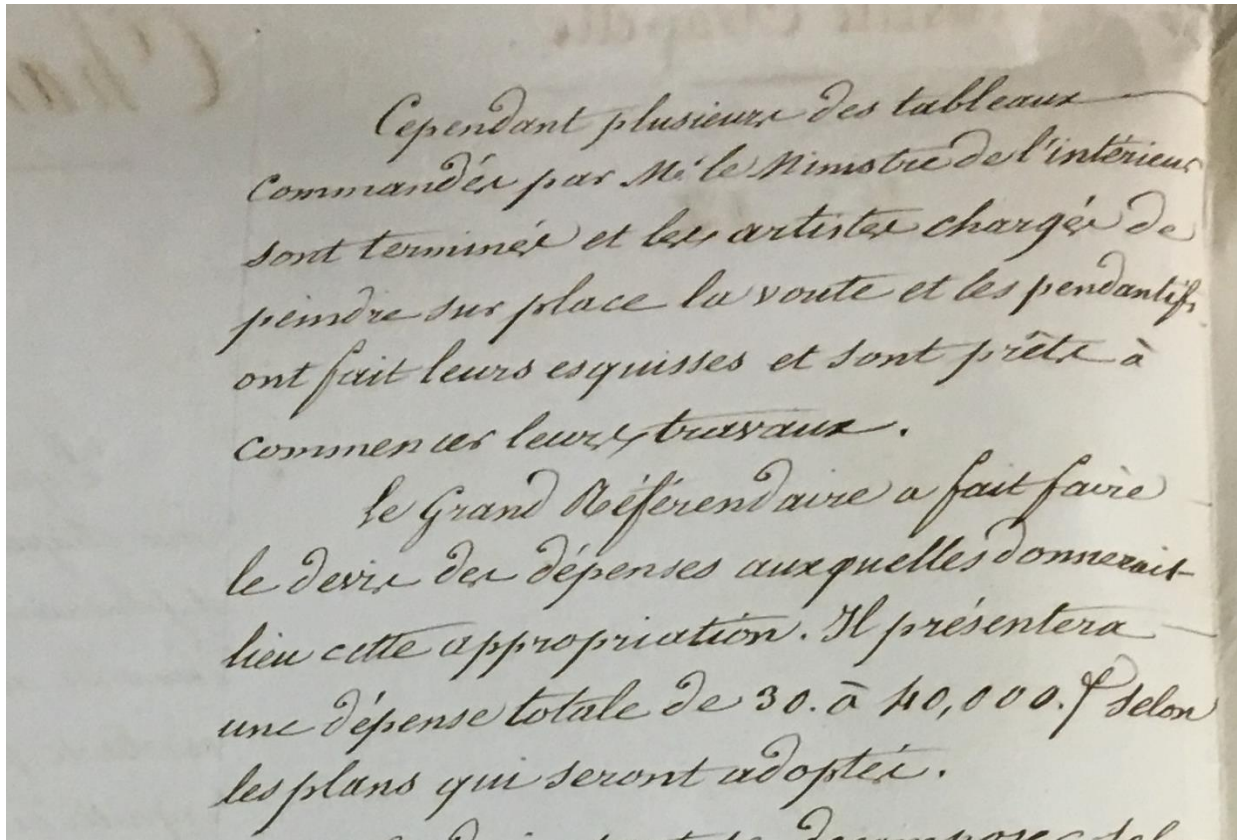 Cependant plusieurs des tableaux
commandés par Mr. le Ministre de l'intérieur
sont terminés et les artistes chargés de
peindre sur place la voute et les pendantifs
ont fait leurs esquisses et sont prêts à
commencer leurs travaux.
le Grand Référendaire a fait faire
le devis des dépenses auxquelles donnerait
lieu cette appropriation. Il présentera
une dépense totale de 30. à 40,000.f selon
les plans qui seront adoptés.